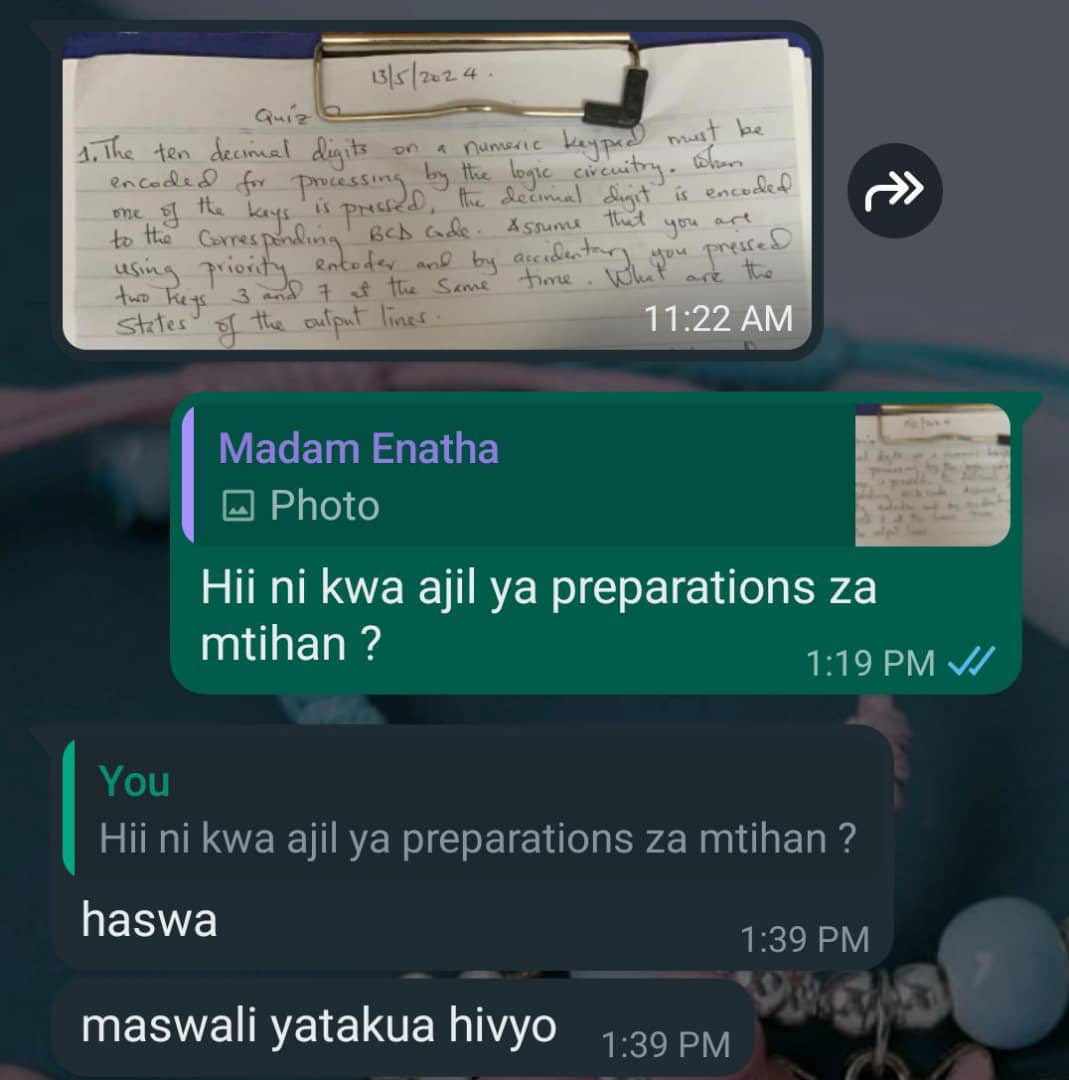 13/5/2024.
Quiz
1. The ten decimal digits on a numeric keypad must be
encoded for processing by the logic circuitry. When
one of the keys is pressed, the decimal digit is encoded
to the Corresponding BCD Code. Assume that you are
using priority entoder and by accidentary you pressed
two keys 3 and 7 at the Same time. What are the
States of the output lines.
11:22 AM
Madam Enatha
Photo
Hii ni kwa ajil ya preparations za
mtihan ?
1:19 PM
You
Hii ni kwa ajil ya preparations za mtihan ?
haswa
1:39 PM
maswali yatakua hivyo
1:39 PM